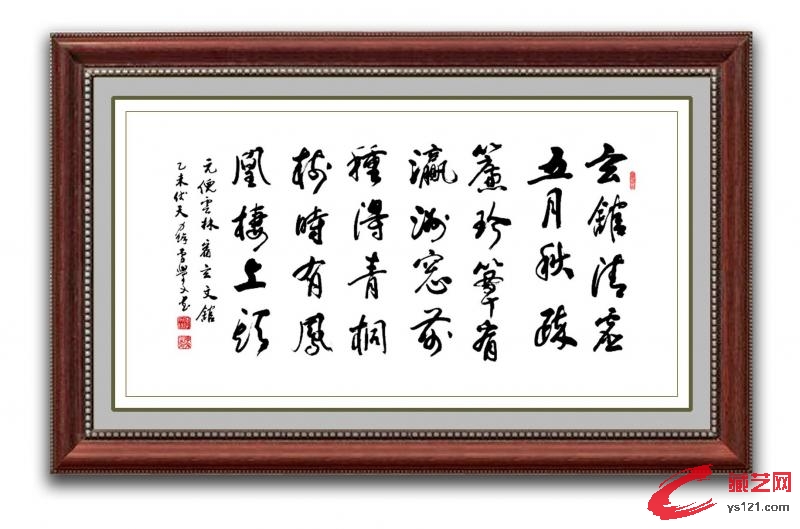 玄館清虛
五月秋疎
簾珍簟有
瀛洲窓前
種得青桐
樹時有鳳
凰棲上頭
元倪雲林宿玄文館
乙未伏天
藏艺网
ys121.com